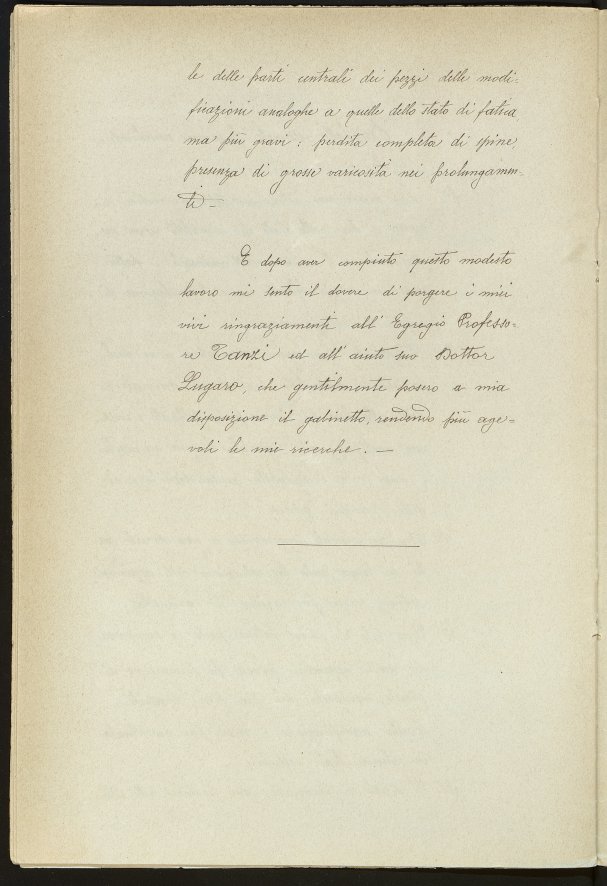 le delle parti centrali dei pezzi delle modi=
ficazioni analoghe a quelle dello stato di fatica
ma più gravi: perdita completa di spine,
presenza di grosse varicosità nei prolungamen-
ti —
E dopo aver compiuto questo modesto
lavoro mi sento il dovere di porgere i miei
vivi ringraziamente all' Egregio Professo=
re Tanzi ed all' aiuto suo Dottor
Lugaro, che gentilmente posero a mia
disposizione il gabinetto, rendendo più age=
voli le mie ricerche. —